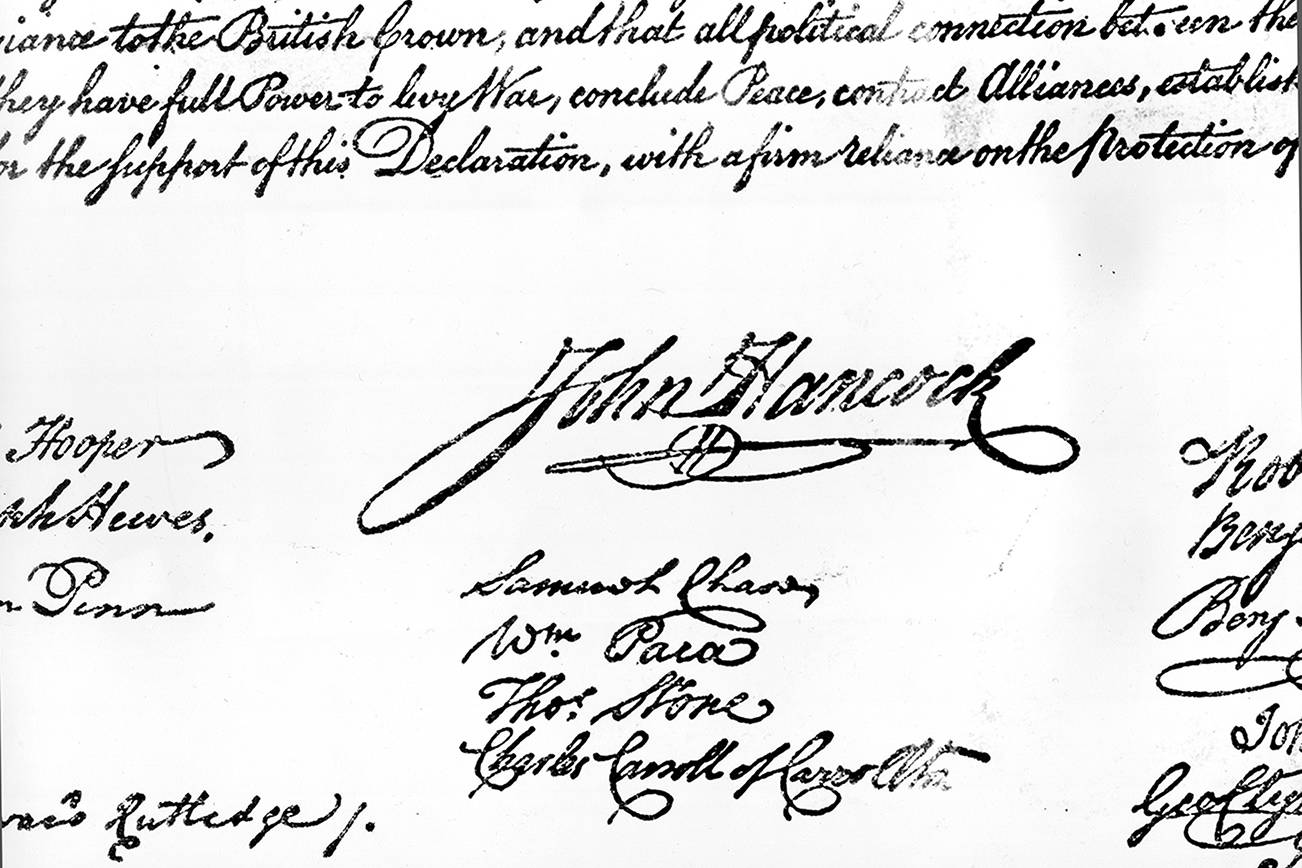 giance to the British Crown, and that all political connection between the
they have full Power to levy War, conclude Peace, contract Alliances, establish
for the support of this Declaration, with a firm reliance on the Protection of
John Hancock
Hooper
ph Hewes.
Penn
Samuel Chase
Wm Paca
Thos. Stone
Charles Carroll of Carrollton
Rutledge /.
Rob
Benj
Benj
Joh
Geo Clyn